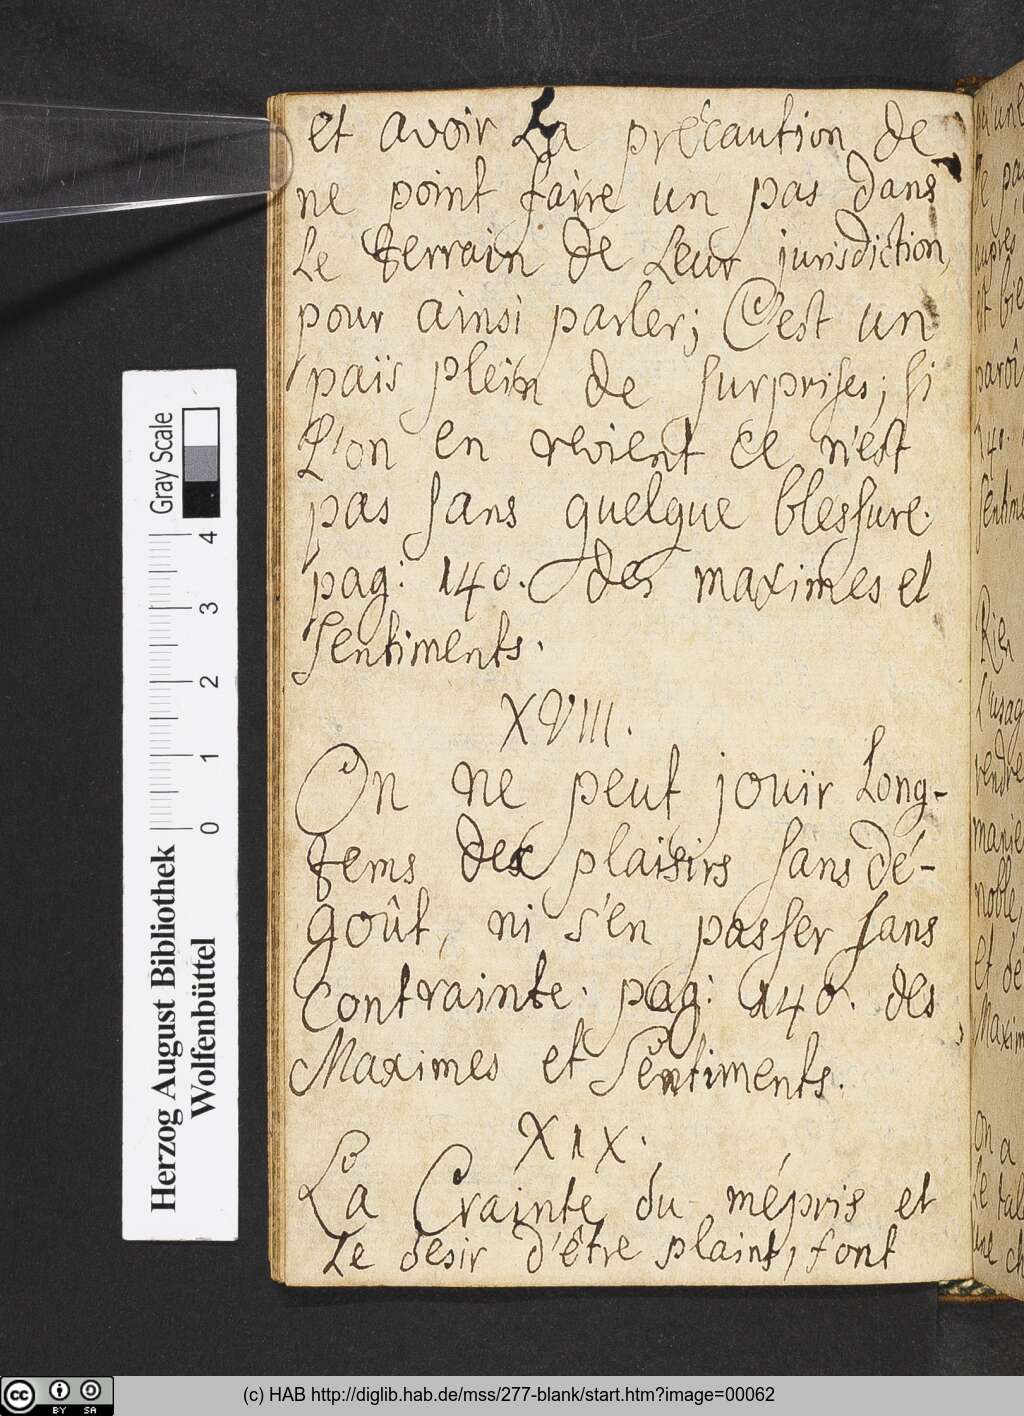 et avoir La précaution de
ne point faire un pas dans
Le terrain de Leur jurisdiction,
pour ainsi parler; C'est un
païs plein de surprises; si
L'on en revient ce n'est
pas sans quelque blessure.
pag: 140. des maximes et
Sentiments.
XVIII.
On ne peut jouïr Long-
tems des plaisirs sans dé-
goût, ni s'en passer sans
contrainte. pag: 140. des
Maximes et Sentiments.
XIX.
La Crainte du mépris et
Le desir d'être plaint, font
Gray Scale
0 1 2 3 4
Herzog August Bibliothek
Wolfenbüttel
cc BY SA
(c) HAB http://diglib.hab.de/mss/277-blank/start.htm?image=00062